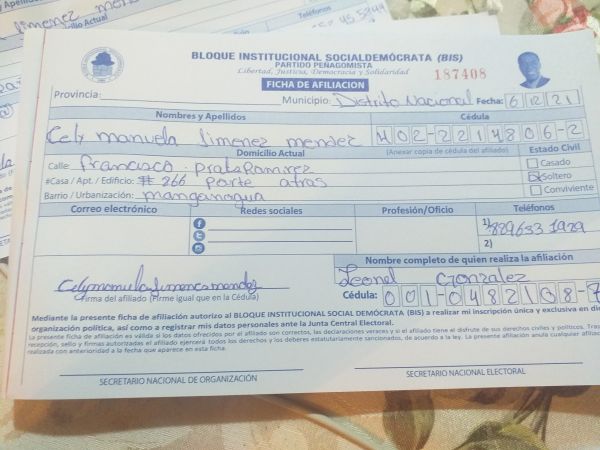 BLOQUE INSTITUCIONAL SOCIALDEMÓCRATA (BIS)
PARTIDO PEÑAGOMISTA
Libertad, Justicia, Democracia y Solidaridad
187408
FICHA DE AFILIACION
Provincia:
Municipio: Distrito Nacional Fecha: 6 12 21
Nombres y Apellidos Cédula
Cely manuela Jimenez mendez 402-2214806-2
Domicilio Actual (Anexar copia de cédula del afiliado) Estado Civil
Calle: francisco prats Ramirez Casado
#Casa / Apt. / Edificio: # 266 parte atras Soltero
Barrio / Urbanización: manganagua Conviviente
Correo electrónico Redes sociales Profesión/Oficio Teléfonos
1) 829633 1929
2)
Nombre completo de quien realiza la afiliación
Leonel Gonzalez
Firma del afiliado (Firme igual que en la Cédula)
Cédula: 001-0482108-7
Mediante la presente ficha de afiliación autorizo al BLOQUE INSTITUCIONAL SOCIAL DEMÓCRATA (BIS) a realizar mi inscripción única y exclusiva en
organización política, así como a registrar mis datos personales ante la Junta Central Electoral.
La presente ficha de afiliación es válida si los datos ofrecidos por el afiliado son correctos, las declaraciones veraces y si el afiliado tiene el disfrute de sus derechos civiles y políticos.
recepción, sello y firmas autorizadas el afiliado ejercerá todos los derechos y los deberes estatutariamente sancionados, de acuerdo a la ley. La presente afiliación anula cualquier
realizada con anterioridad a la fecha que aparece en esta ficha.
SECRETARIO NACIONAL DE ORGANIZACIÓN SECRETARIO NACIONAL ELECTORAL